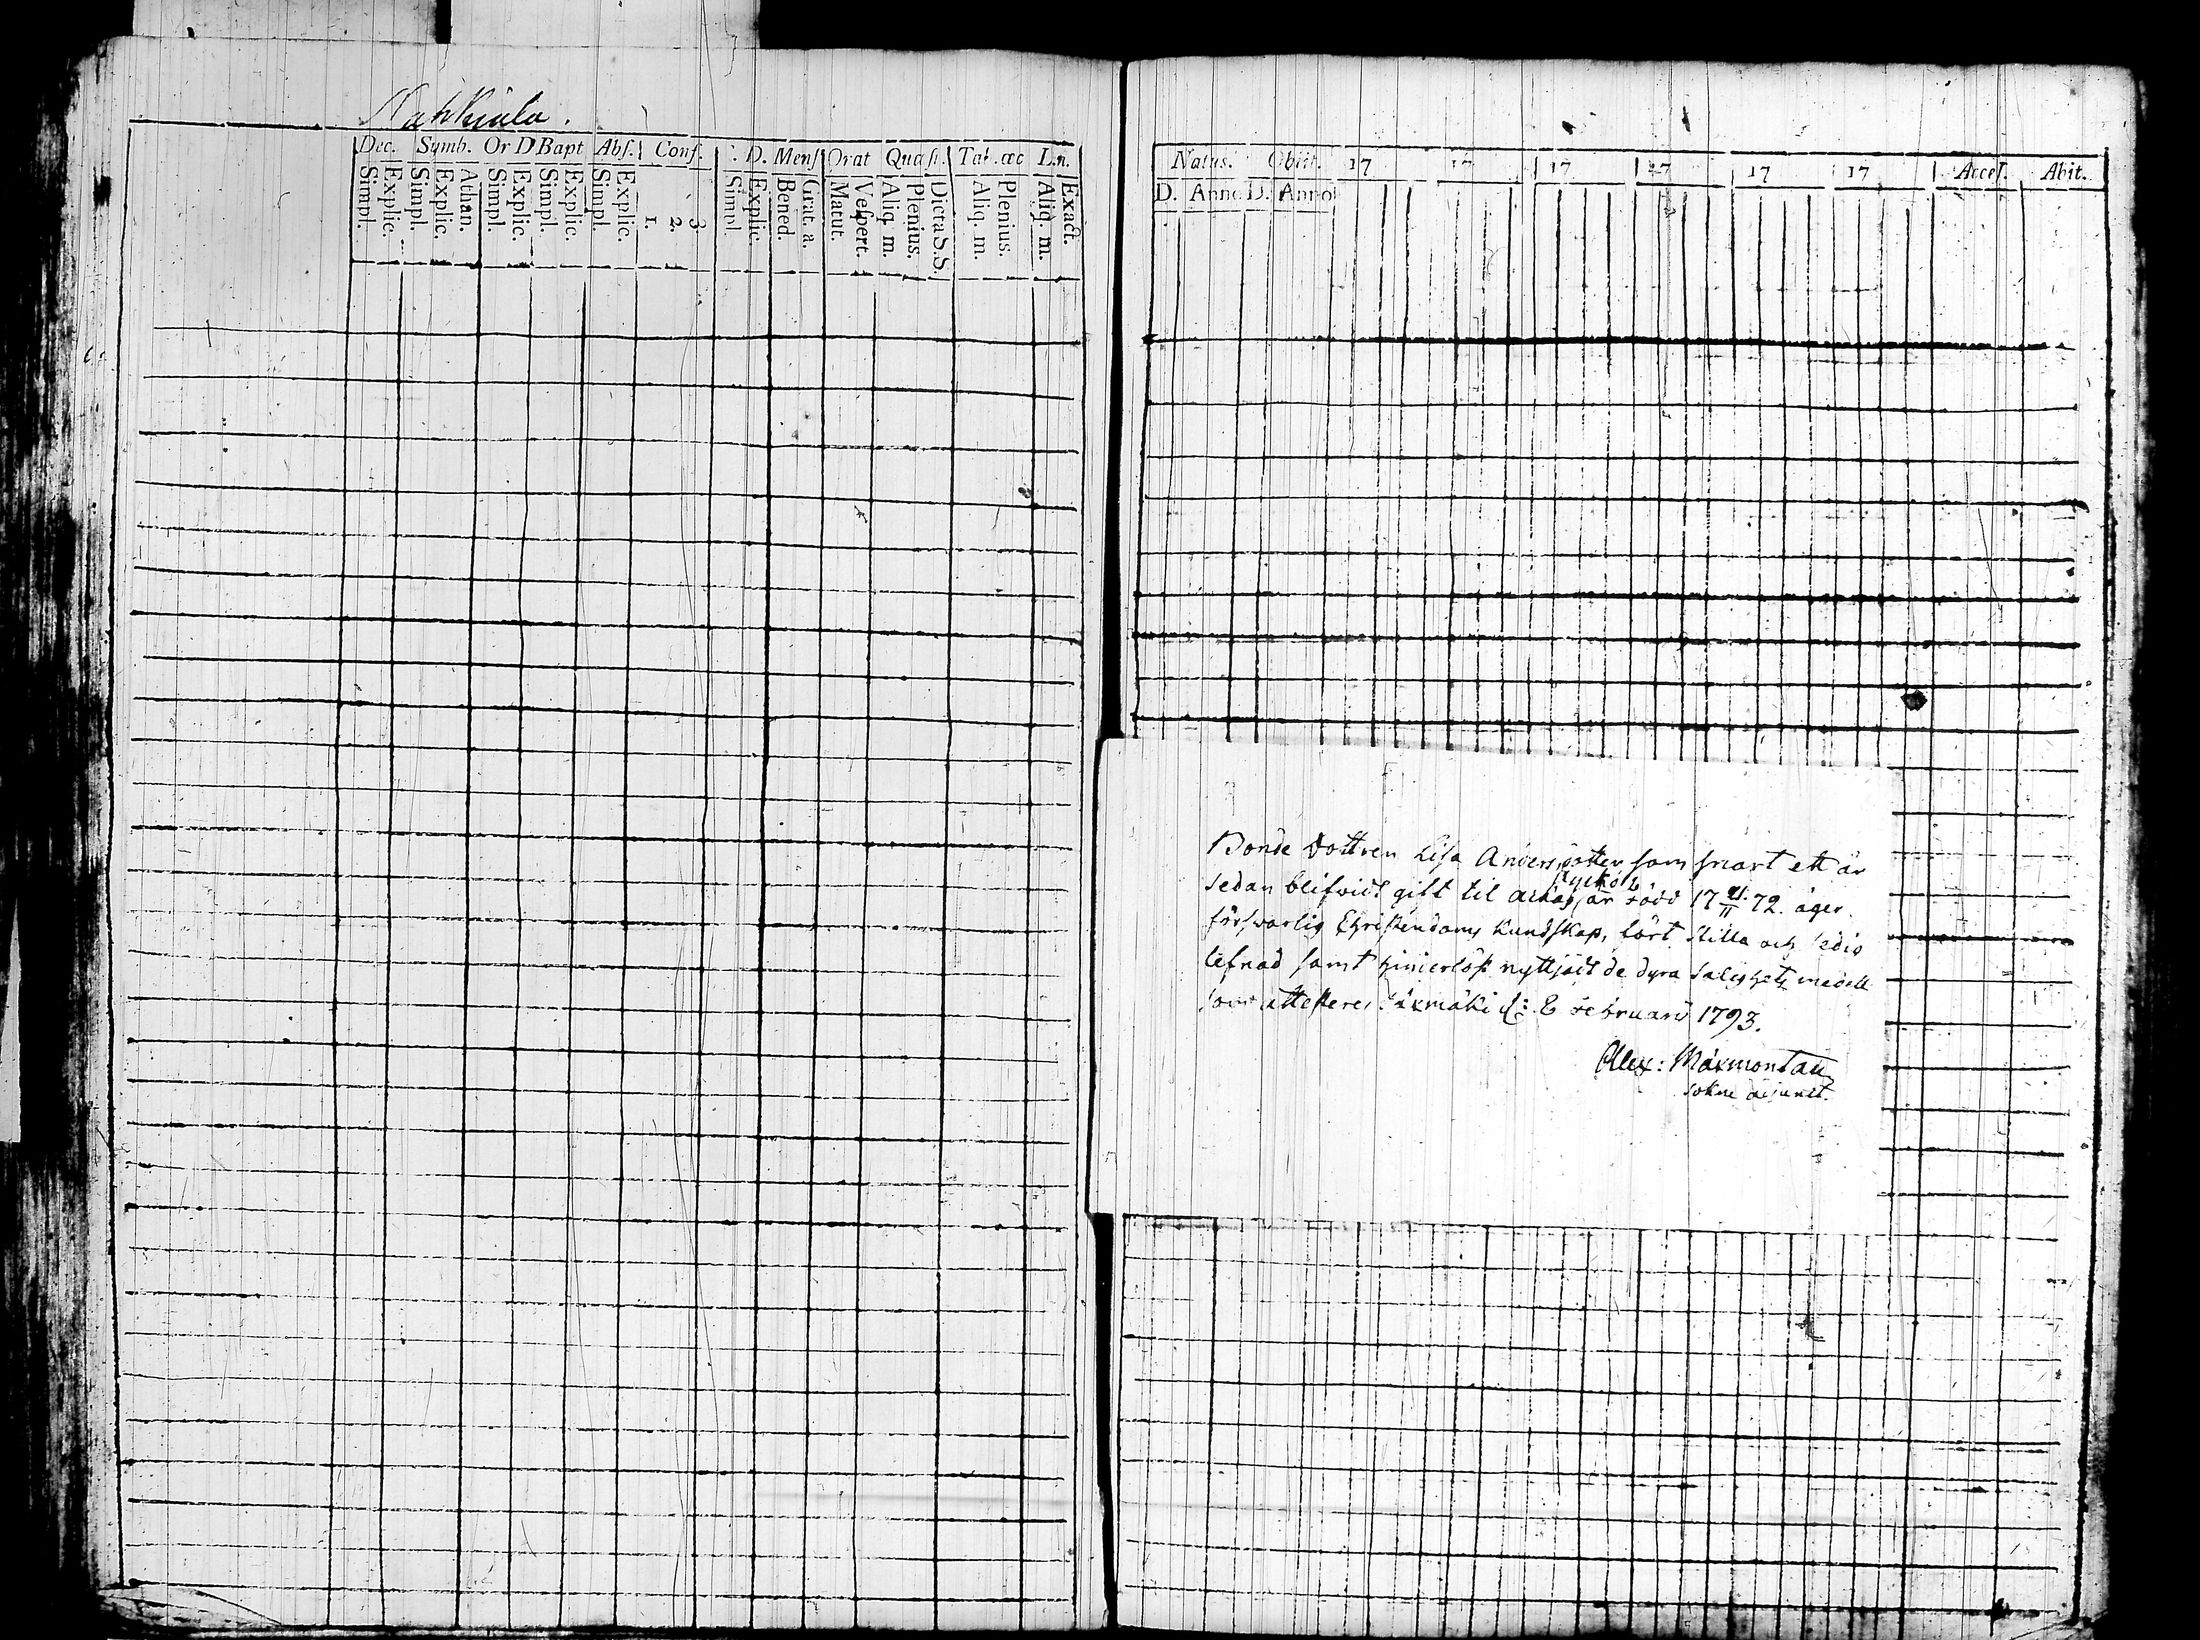 Nahkiala.
Dec. Symb. Or D Bapt Abs. Conf. D. Mens Orat Quæst. Tab. œc
Simpl. Explic. Simpl. Explic. Athan. Simpl. Explic. Simpl. Explic. Simpl. Explic. 1. 2. 3. Simpl. Explic. Bened. Grat. a. Matut. Vespert. Aliq. m. Plenius. Dicta S.S. Aliq. m. Plenius. Aliq. m. Exact.
Natus. Obiit. 17 17 17 17 17 17 Acces. Abit.
D. Anno D. Anno
Bonde dottren Lisa Andersdotter som snart ett år
sedan blifvidt gift til är född 17 72. äger
försvarlig Christendoms Kundskap, fört stilla och sedig
lefnad samt hinderlöst nyttjadt de dyra salighets medell
som attesteres d: 8 Februarii 1793.
Alex: Maxmontan
Sokne adjunct.